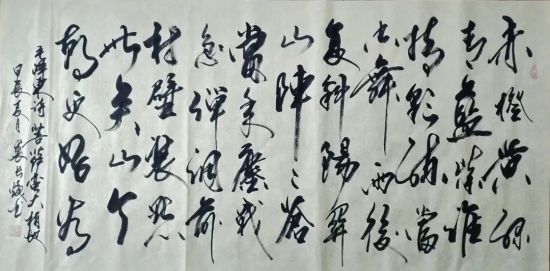 赤橙黄绿
青蓝紫谁
持彩练當
空舞雨後
复斜陽関
山陣々苍
當年鏖战
急弹洞前
村壁装點
此关山今
朝更好看
毛泽东诗菩萨蛮大柏地
甲辰夏月